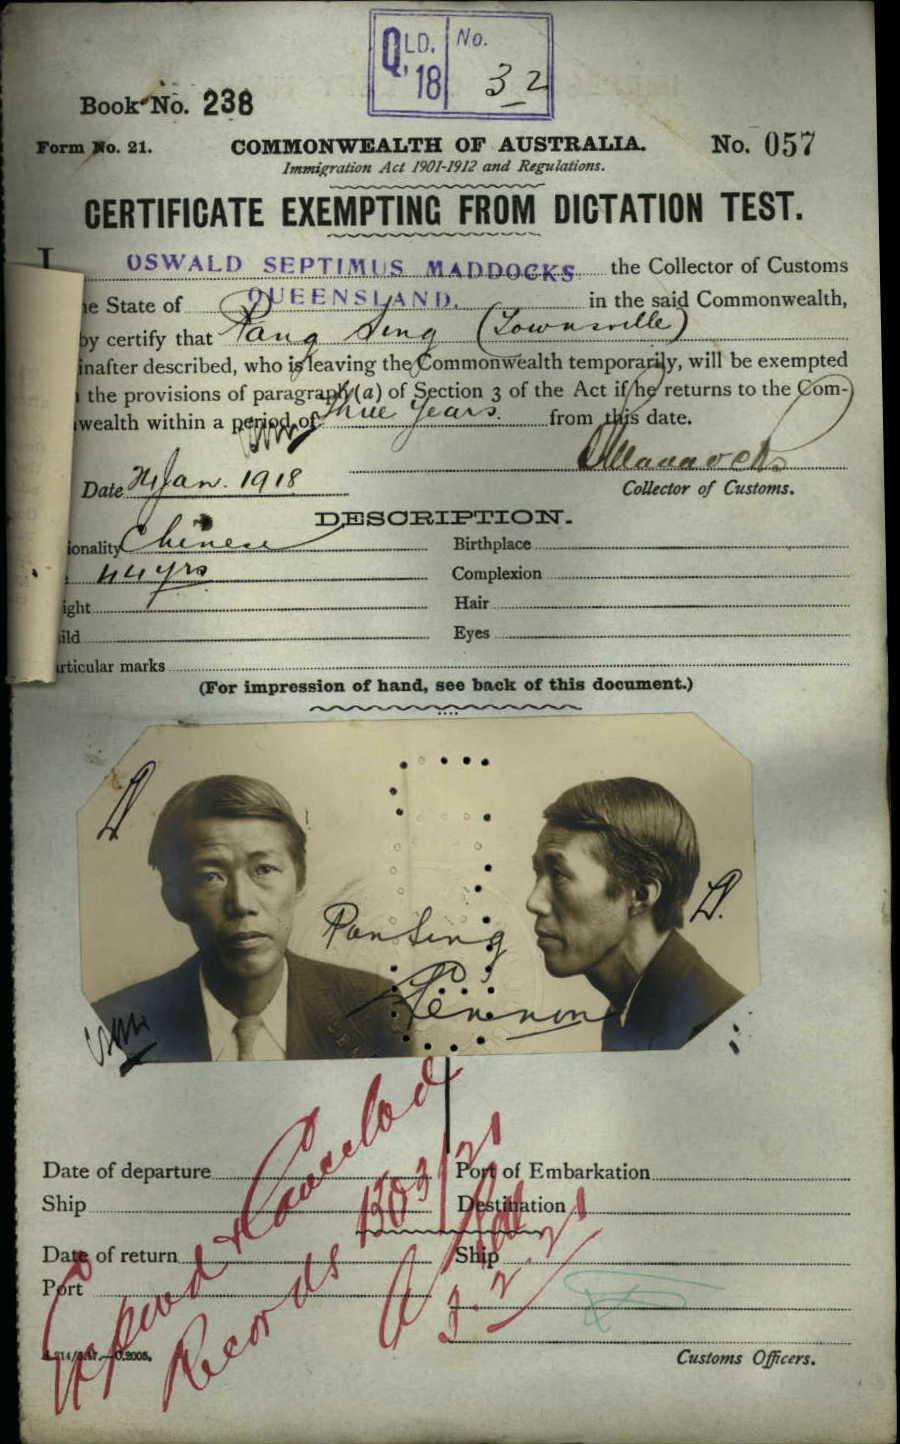 QLD. 18 No. 32
Book No. 238
Form No. 21. COMMONWEALTH OF AUSTRALIA. No. 057
Immigration Act 1901-1912 and Regulations.
CERTIFICATE EXEMPTING FROM DICTATION TEST.
I OSWALD SEPTIMUS MADDOCKS the Collector of Customs
he State of QUEENSLAND. in the said Commonwealth,
by certify that Pang Sing (Townsville)
inafter described, who is leaving the Commonwealth temporarily, will be exempted
the provisions of paragraph (a) of Section 3 of the Act if he returns to the Com-
wealth within a period of Three Years. from this date.
OSMaddocks
Date Jan. 1918 Collector of Customs.
DESCRIPTION.
ionality Chinese Birthplace
44 yrs Complexion
ight Hair
ild Eyes
articular marks
(For impression of hand, see back of this document.)
Pan Sing
Date of departure Port of Embarkation
Ship Destination
Date of return Ship
Port
Expired & Cancelled
Records 1303/21
3.2.21
Customs Officers.